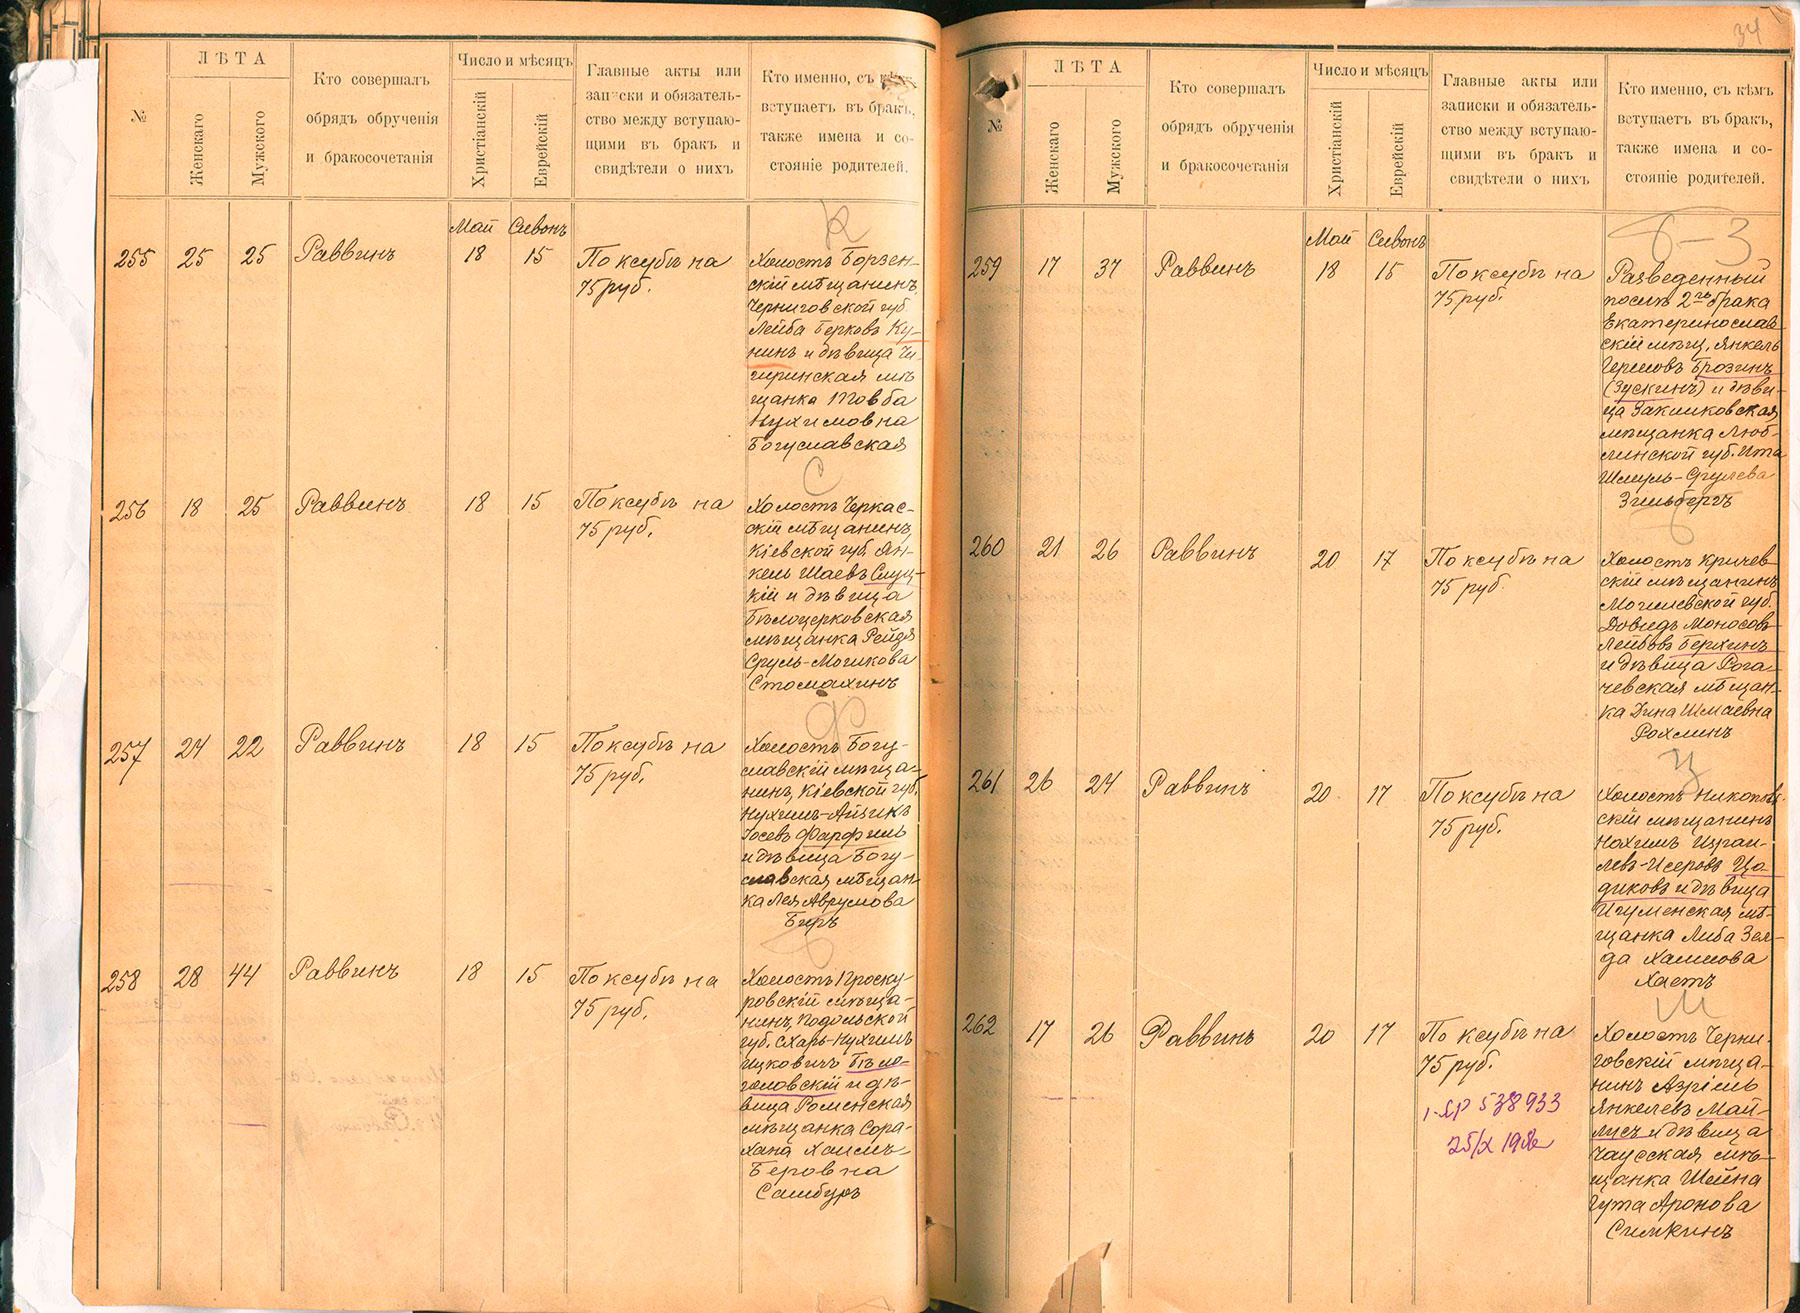 №
ЛѢТА
Женскаго
Мужского
Кто совершалъ
обрядъ обрученія
и бракосочетанія
Число и мѣсяцъ
Христіанскій
Еврейскій
Главные акты или
записки и обязатель-
ство между вступаю-
щими въ бракъ и
свидѣтели о нихъ
Кто именно, съ кѣмъ
вступаетъ въ бракъ,
также имена и со-
стояніе родителей.
Май Сивонъ
К
255 25 25 Раввинъ 18 15
По ксубѣ на
75 руб.
Холостъ Борзен-
скій мѣщанинъ,
Черниговской губ
Лейба Берковъ Ку-
нинъ и дѣвица Чи-
гиринская мѣ
щанка Товба
Нухимовна
Богуславская
С
256 18 25 Раввинъ 18 15
По ксубѣ на
75 руб.
Холостъ Черкас-
скій мѣщанинъ,
Кіевской губ. Ян-
кель Шаевъ Слуц-
кій и дѣвица
Бѣлоцерковская
мѣщанка Рейдя
Сруль-Мошкова
Стомахинъ
Ф
257 24 22 Раввинъ 18 15
По ксубѣ на
75 руб.
Холостъ Богу-
славскій мѣща-
нинъ, Кіевской губ.
Нухимъ-Айзикъ
Іосевъ Фарфель
и дѣвица Богу-
славская мѣщан-
ка Лея Аврумова
Б
258 28 44 Раввинъ 18 15
По ксубѣ на
75 руб.
Холостъ Проску-
ровскій мѣща-
нинъ, Подольской
губ. Схарь-Нухимъ
Ицковичъ Бѣло-
головскій и дѣ-
вица Роменская
мѣщанка Сора-
Хана Хаимъ-
Беровна
Самбуръ
34
№
ЛѢТА
Женскаго
Мужского
Кто совершалъ
обрядъ обрученія
и бракосочетанія
Число и мѣсяцъ
Христіанскій
Еврейскій
Главные акты или
записки и обязатель-
ство между вступаю-
щими въ бракъ и
свидѣтели о нихъ
Кто именно, съ кѣмъ
вступаетъ въ бракъ,
также имена и со-
стояніе родителей.
Май Сивонъ
Б-З
259 17 37 Раввинъ 18 15
По ксубѣ на
75 руб.
Разведенный
послѣ 2го брака
Екатеринослав-
скій мѣщ. Янкель
Гершовъ Брозинъ
(Зускинъ) и дѣви-
ца Закликовская
мѣщанка Люб-
линской губ. Ита
Шмуль-Срулева
Зильбергъ
Б
260 21 26 Раввинъ 20 17
По ксубѣ на
75 руб.
Холостъ Кричев-
скій мѣщанинъ
Могилевской губ.
Довидъ Моносовъ-
Лейбовъ Берхинъ
и дѣвица Рога-
чевская мѣщан-
ка Дина Шмаевна
Рохлинъ
Ц
261 26 24 Раввинъ 20 17
По ксубѣ на
75 руб.
Холостъ Никополь-
скій мѣщанинъ
Нохимъ Израи-
левъ-Исеровъ Ца-
диковъ и дѣвица
Игуменская мѣ-
щанка Либа Зел-
да Хаимова
Хастъ
М
262 17 26 Раввинъ 20 17
По ксубѣ на
75 руб.
538933
Холостъ Черни-
говскій мѣща-
нинъ Азріель
Янкелевъ Май-
лисъ и дѣвица
Чаусская мѣ-
щанка Шейна
Гута Аронова
Симкинъ